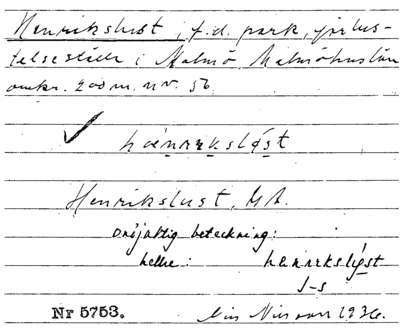 Henrikslust, f.d. park, förlus-
telseställe i Malmö Malmöhus län
omkr. 200 m. n.v. 56
hænrıkslø̨st
Henrikslust, MA.
oriktig beteckning:
hellre: hænrıksløst
J-s
Nr 5753. Nils Nilsson 1936.